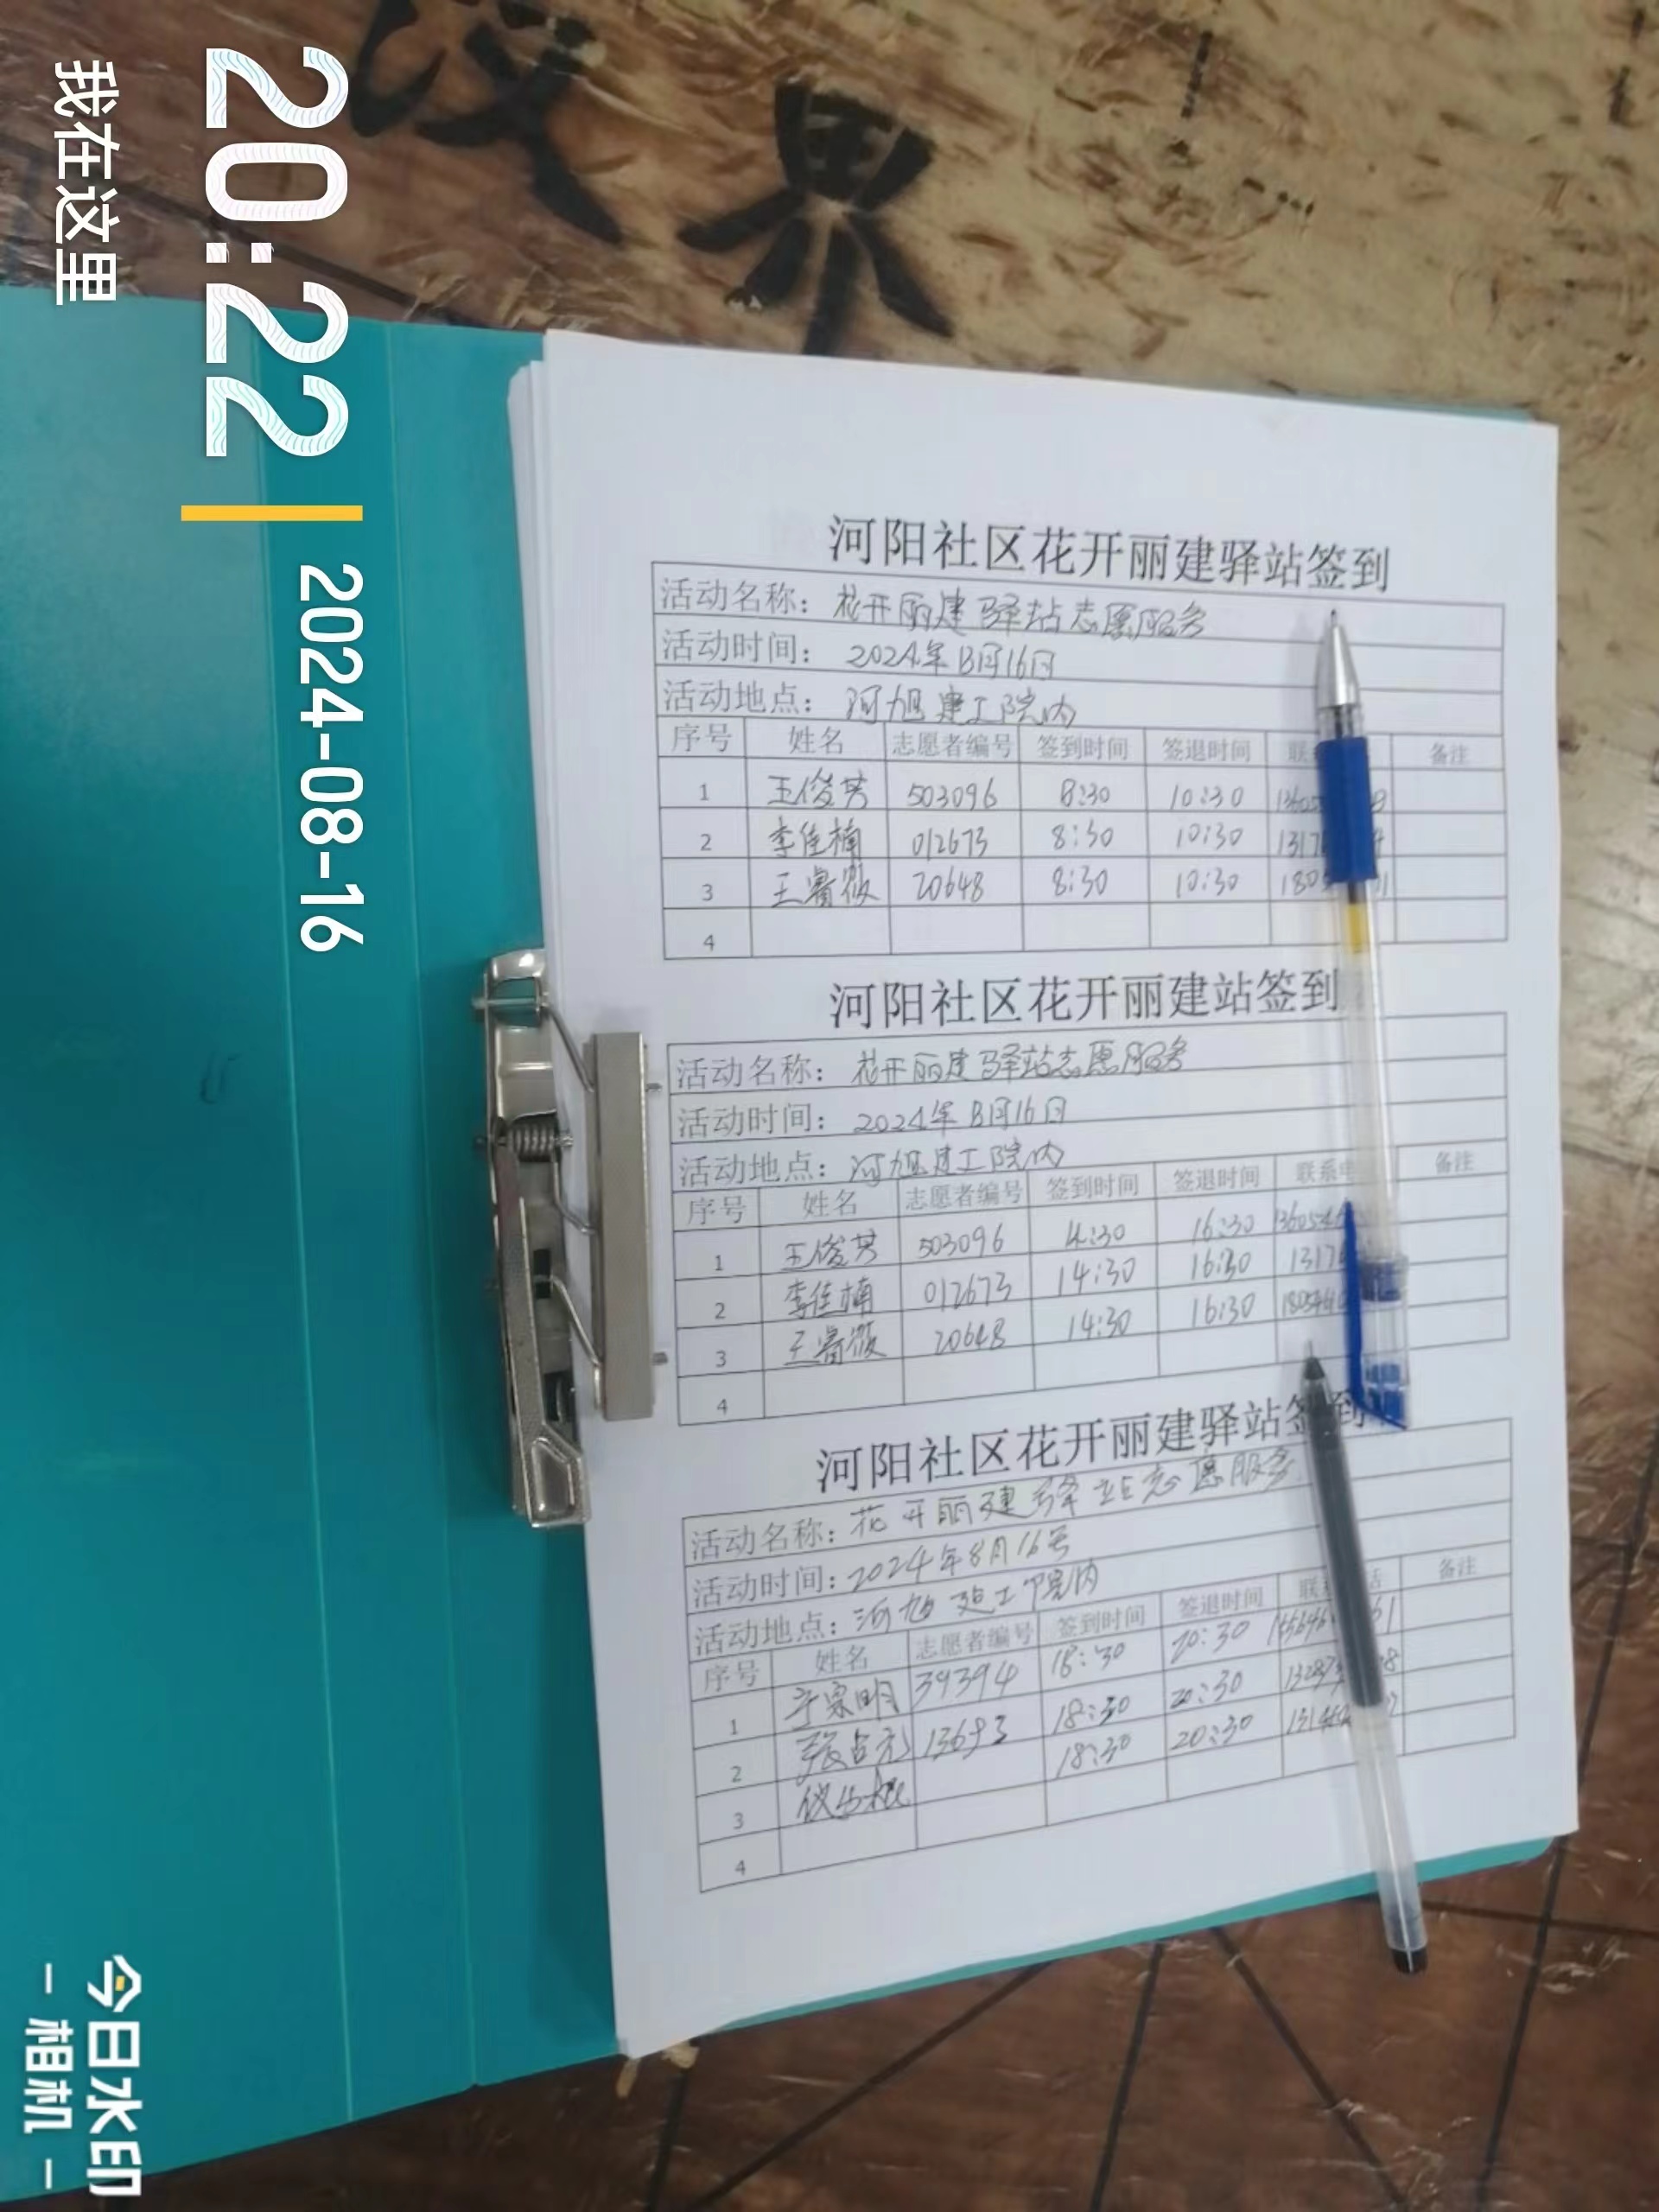 20:22
2024-08-16
我在这里
今日水印
相机
河阳社区花开丽建驿站签到
活动名称：花开丽建驿站志愿服务
活动时间：2024年8月16日
活动地点：河旭建工院内
序号 姓名 志愿者编号 签到时间 签退时间 备注
1 王俊芳 503096 8:30 10:30
2 李佳楠 012673 8:30 10:30
3 王睿薇 20648 8:30 10:30
4
河阳社区花开丽建站签到
活动名称：花开丽建驿站志愿服务
活动时间：2024年8月16日
活动地点：河旭建工院内
序号 姓名 志愿者编号 签到时间 签退时间 联系 备注
1 王俊芳 503096 14:30 16:30
2 李佳楠 012673 14:30 16:30
3 王睿薇 20648 14:30 16:30
4
河阳社区花开丽建驿站签到
活动名称：花开丽建驿站志愿服务
活动时间：2024年8月16号
活动地点：河旭建工院内
序号 姓名 志愿者编号 签到时间 签退时间 备注
1 39394 18:30 20:30
2 13693 18:30 20:30
3 18:30 20:30
4